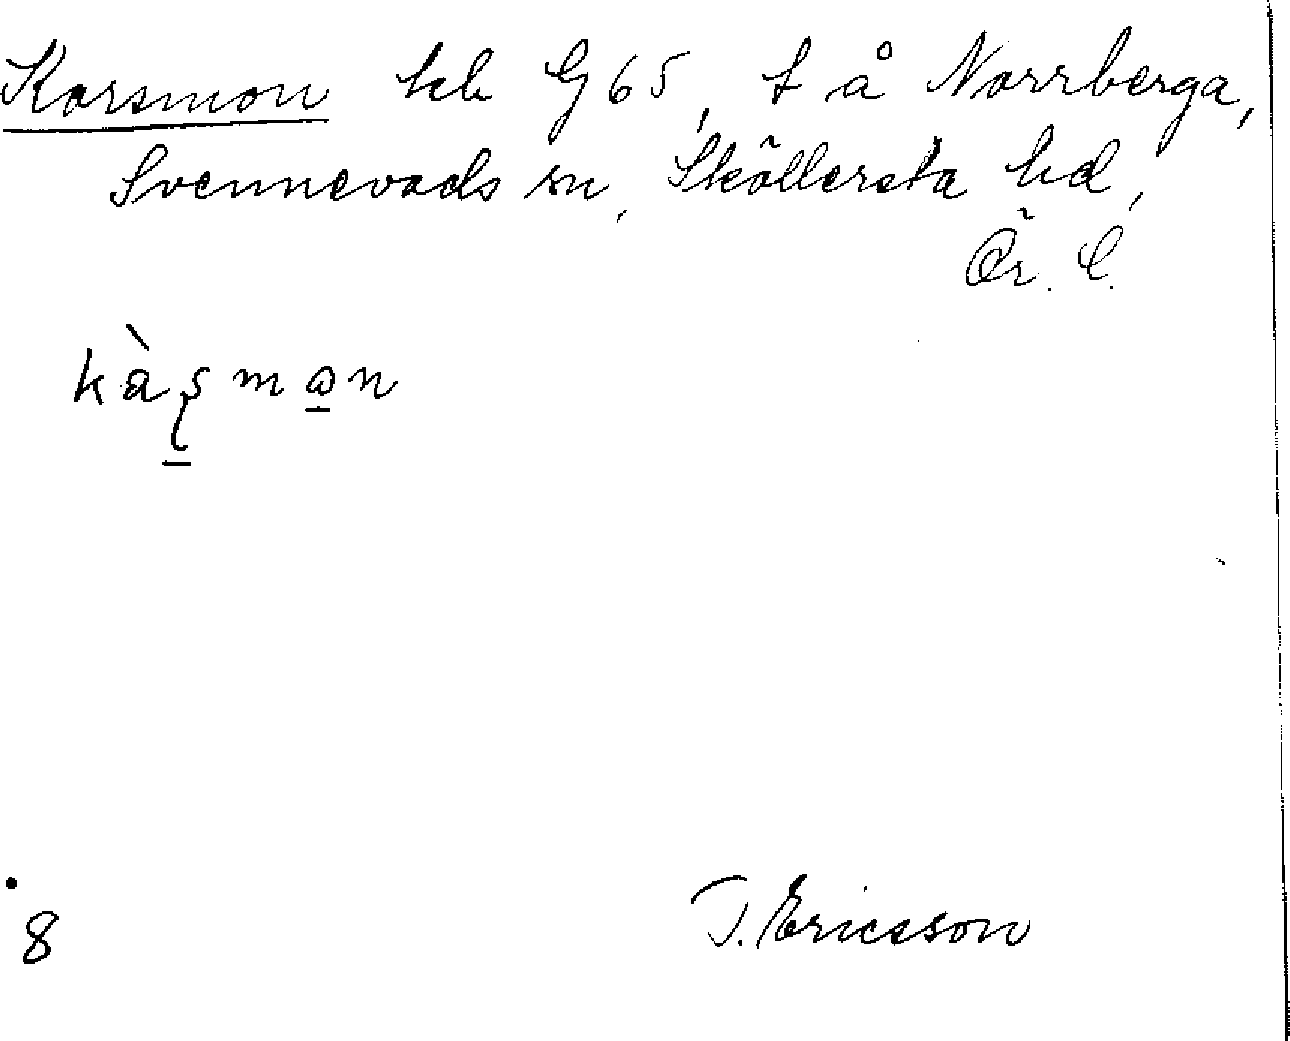 Korsmon kb G 65, t å Norrberga,
Svennevads sn, Sköllersta hd,
Ör. l.
kàʂmon
8
T. Ericsson